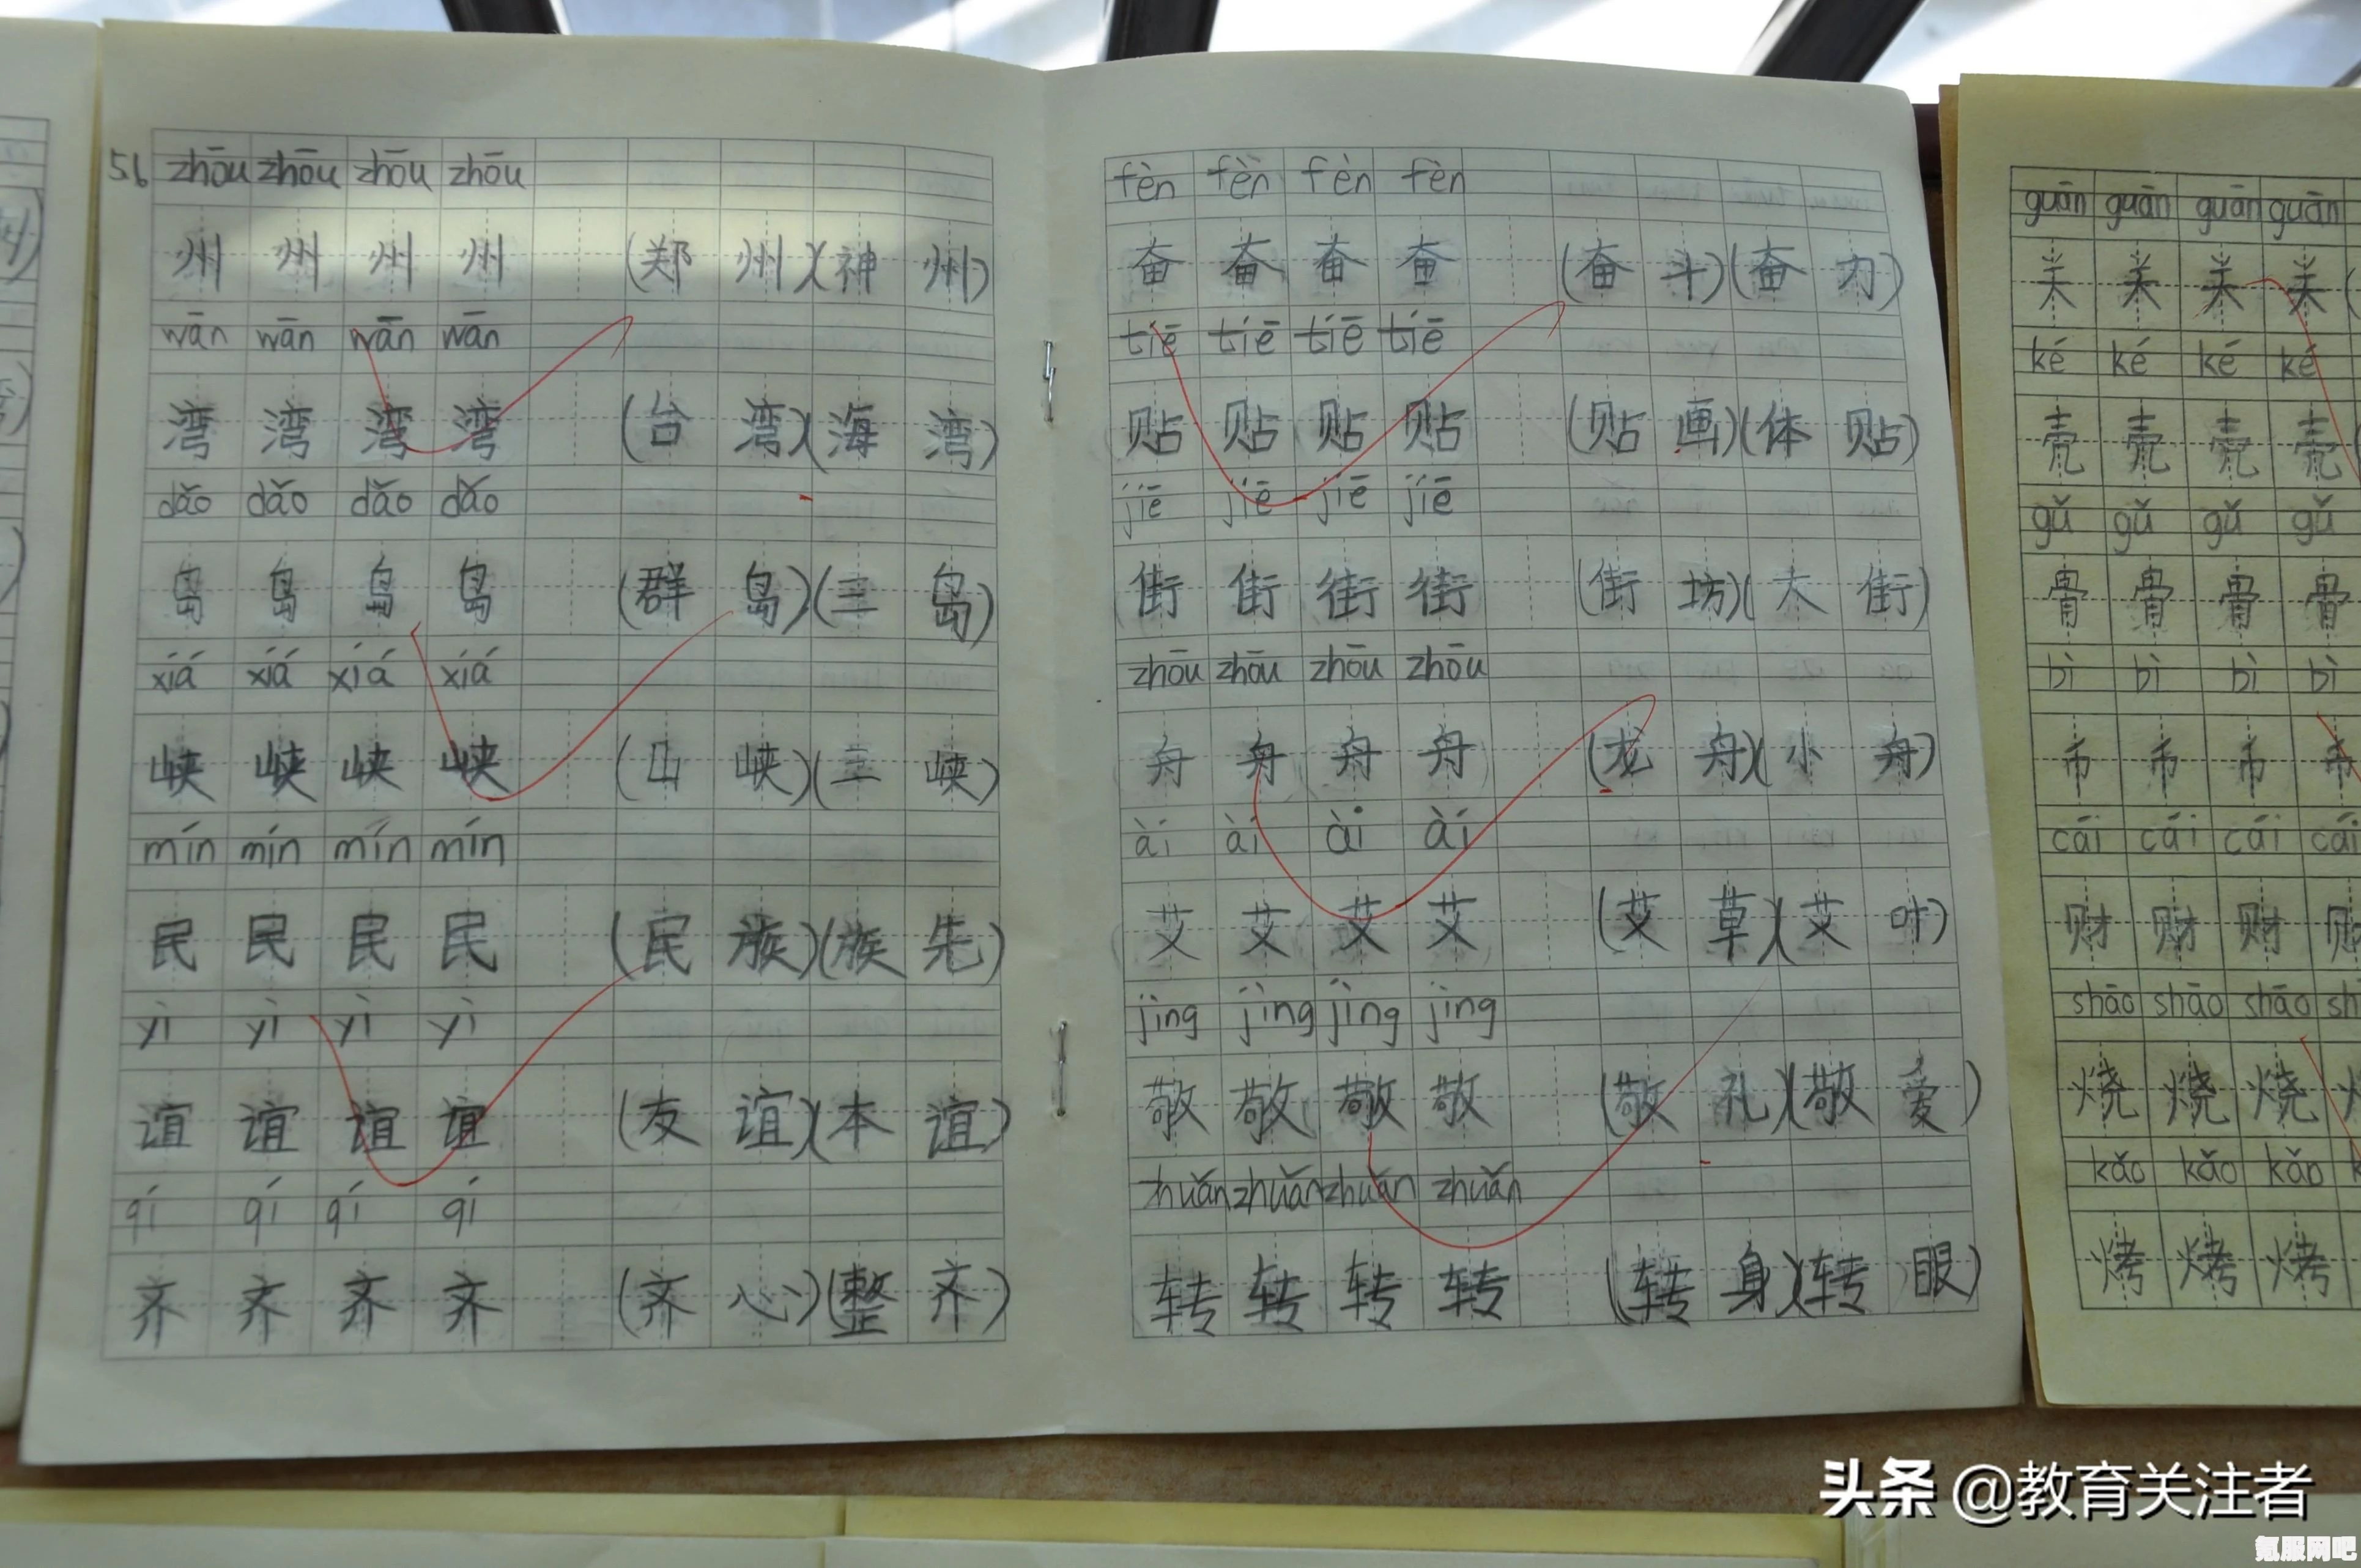 56 zhōu zhōu zhōu zhōu
州 州 州 州 (郑 州)(神 州)
wān wān wān wān
湾 湾 湾 湾 (台 湾)(海 湾)
dǎo dǎo dǎo dǎo
岛 岛 岛 岛 (群 岛)(三 岛)
xiá xiá xiá xiá
峡 峡 峡 峡 (山 峡)(三 峡)
mín mín mín mín
民 民 民 民 (民 族)(族 先)
yì yì yì yì
谊 谊 谊 谊 (友 谊)(本 谊)
qí qí qí qí
齐 齐 齐 齐 (齐 心)(整 齐)
fèn fèn fèn fèn
奋 奋 奋 奋 (奋 斗)(奋 力)
tiē tiē tiē tiē
贴 贴 贴 贴 (贴 画)(体 贴)
jiē jiē jiē jiē
街 街 街 街 (街 坊)(大 街)
zhōu zhōu zhōu zhōu
舟 舟 舟 舟 (龙 舟)(小 舟)
ài ài ài ài
艾 艾 艾 艾 (艾 草)(艾 叶)
jìng jìng jìng jìng
敬 敬 敬 敬 (敬 礼)(敬 爱)
zhuǎn zhuǎn zhuǎn zhuǎn
转 转 转 转 (转 身)(转 眼)
guān guān guān guān
关 关 关 关
ké ké ké ké
壳 壳 壳 壳
gǔ gǔ gǔ gǔ
骨 骨 骨 骨
bì bì bì bì
币 币 币 币
cái cái cái cái
财 财 财
shāo shāo shāo sh
烧 烧 烧
kǎo kǎo kǎo
烤 烤 烤
头条 @教育关注者
氪服网吧